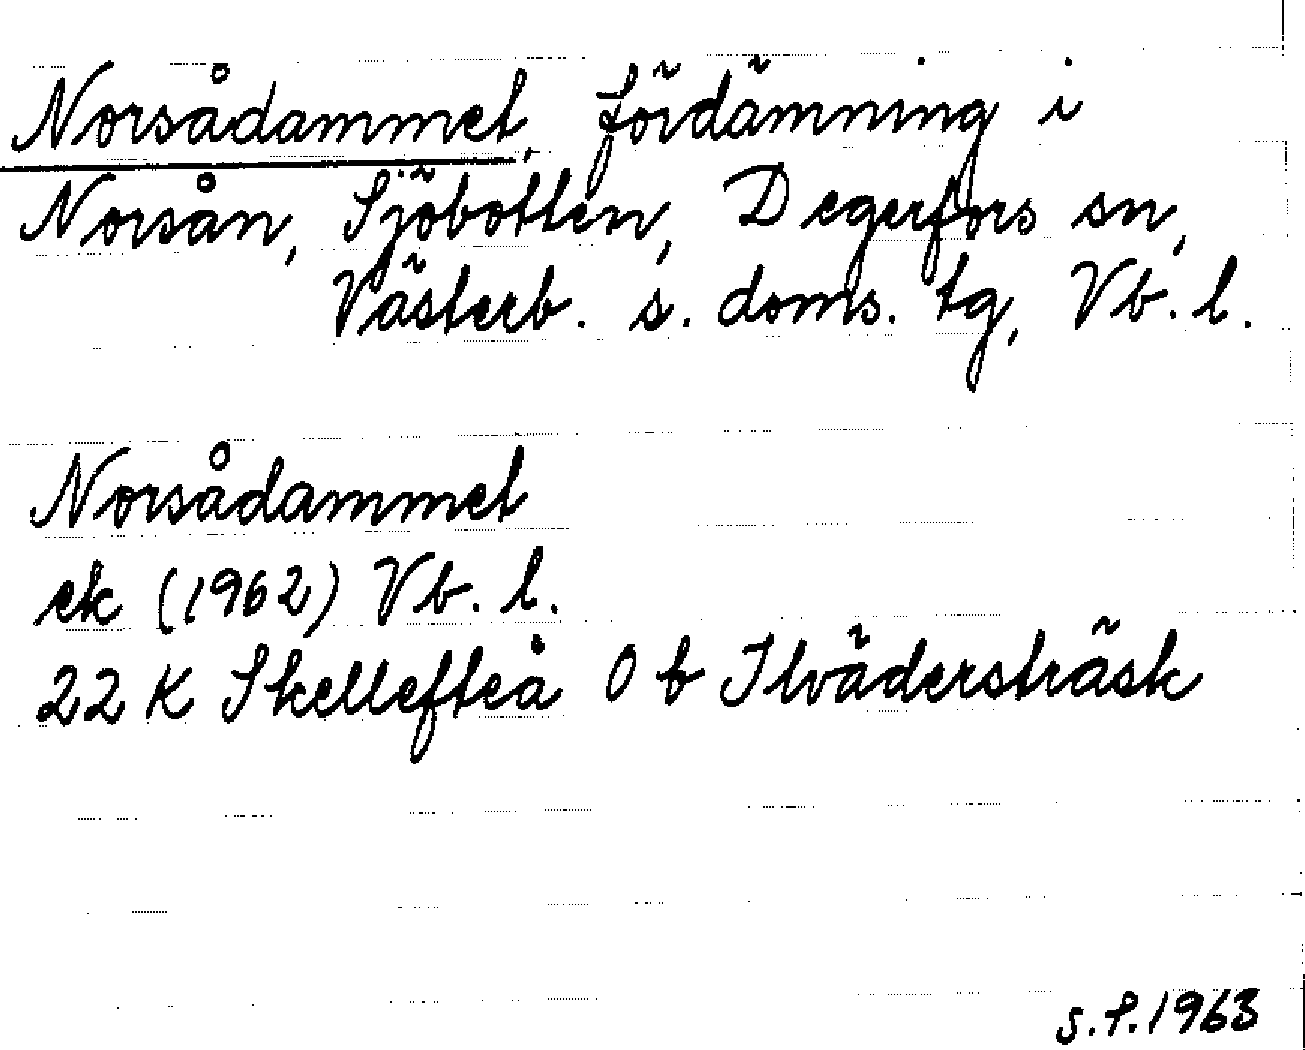 Norsådammet, fördämning i
Norsån, Sjöbotten, Degerfors sn,
Västerb. s. doms. tg, Vb. l.
Norsådammet
ek (1962) Vb. l.
22 K Skellefteå 0 b Ilvädersträsk
S.P. 1963